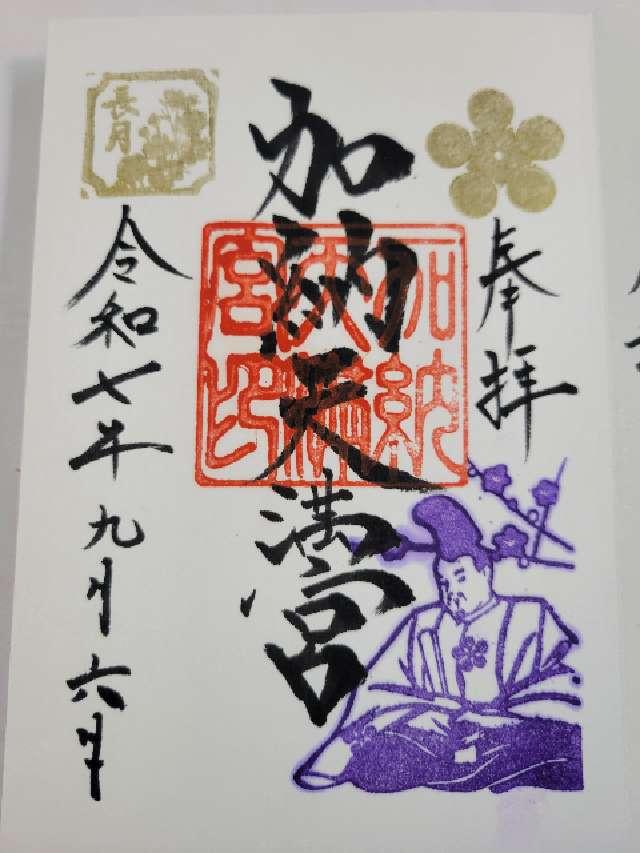 奉拝
加納天満宮
加納天満宮印
長月
令和七年九月六日